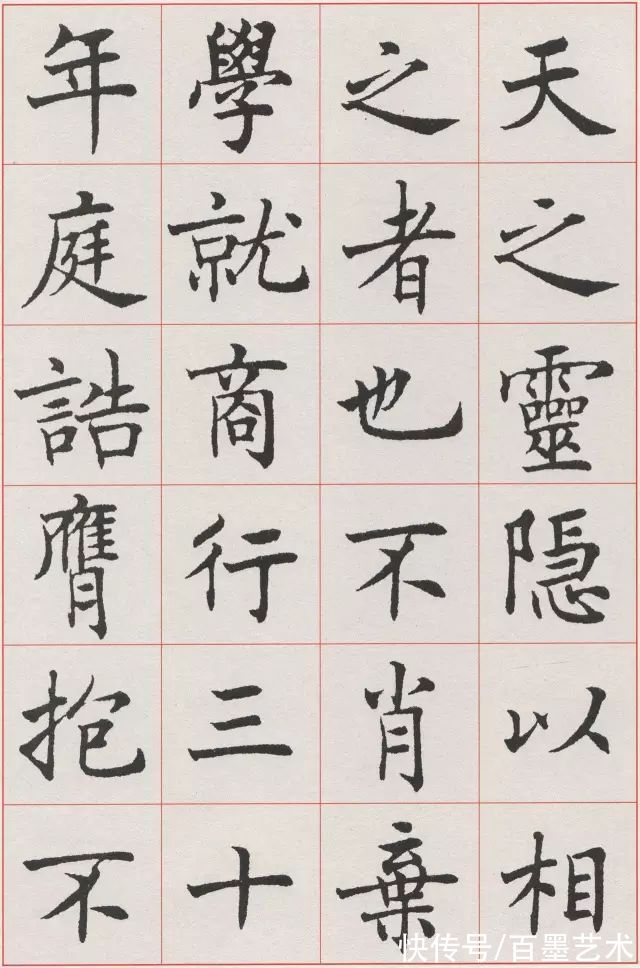 天之靈隱以相
之者也不肖棄
學就商行三十
年庭誥膺抱不
快传号/百墨艺术